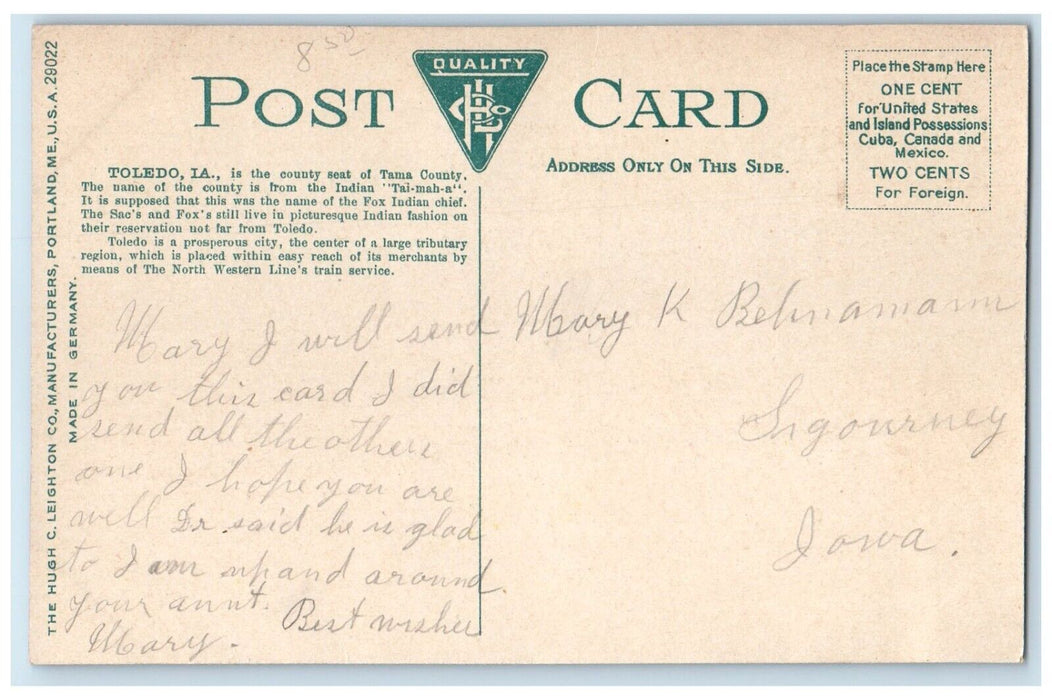 8 50
POST CARD
QUALITY
ADDRESS ONLY ON THIS SIDE.
Place the Stamp Here
ONE CENT
for United States
and Island Possessions
Cuba, Canada and
Mexico.
TWO CENTS
For Foreign.
THE HUGH C. LEIGHTON CO., MANUFACTURERS, PORTLAND, ME., U.S.A. 29022
MADE IN GERMANY.
TOLEDO, IA., is the county seat of Tama County.
The name of the county is from the Indian "Tai-mah-a".
It is supposed that this was the name of the Fox Indian chief.
The Sac's and Fox's still live in picturesque Indian fashion on
their reservation not far from Toledo.
Toledo is a prosperous city, the center of a large tributary
region, which is placed within easy reach of its merchants by
means of The North Western Line's train service.
Mary I will send
you this card I did
send all the others
one I hope you are
well Dr. said he is glad
to I am up and around
your aunt.
Best wishes
Mary.
Mary K Behnamann
Sigourney
Iowa.